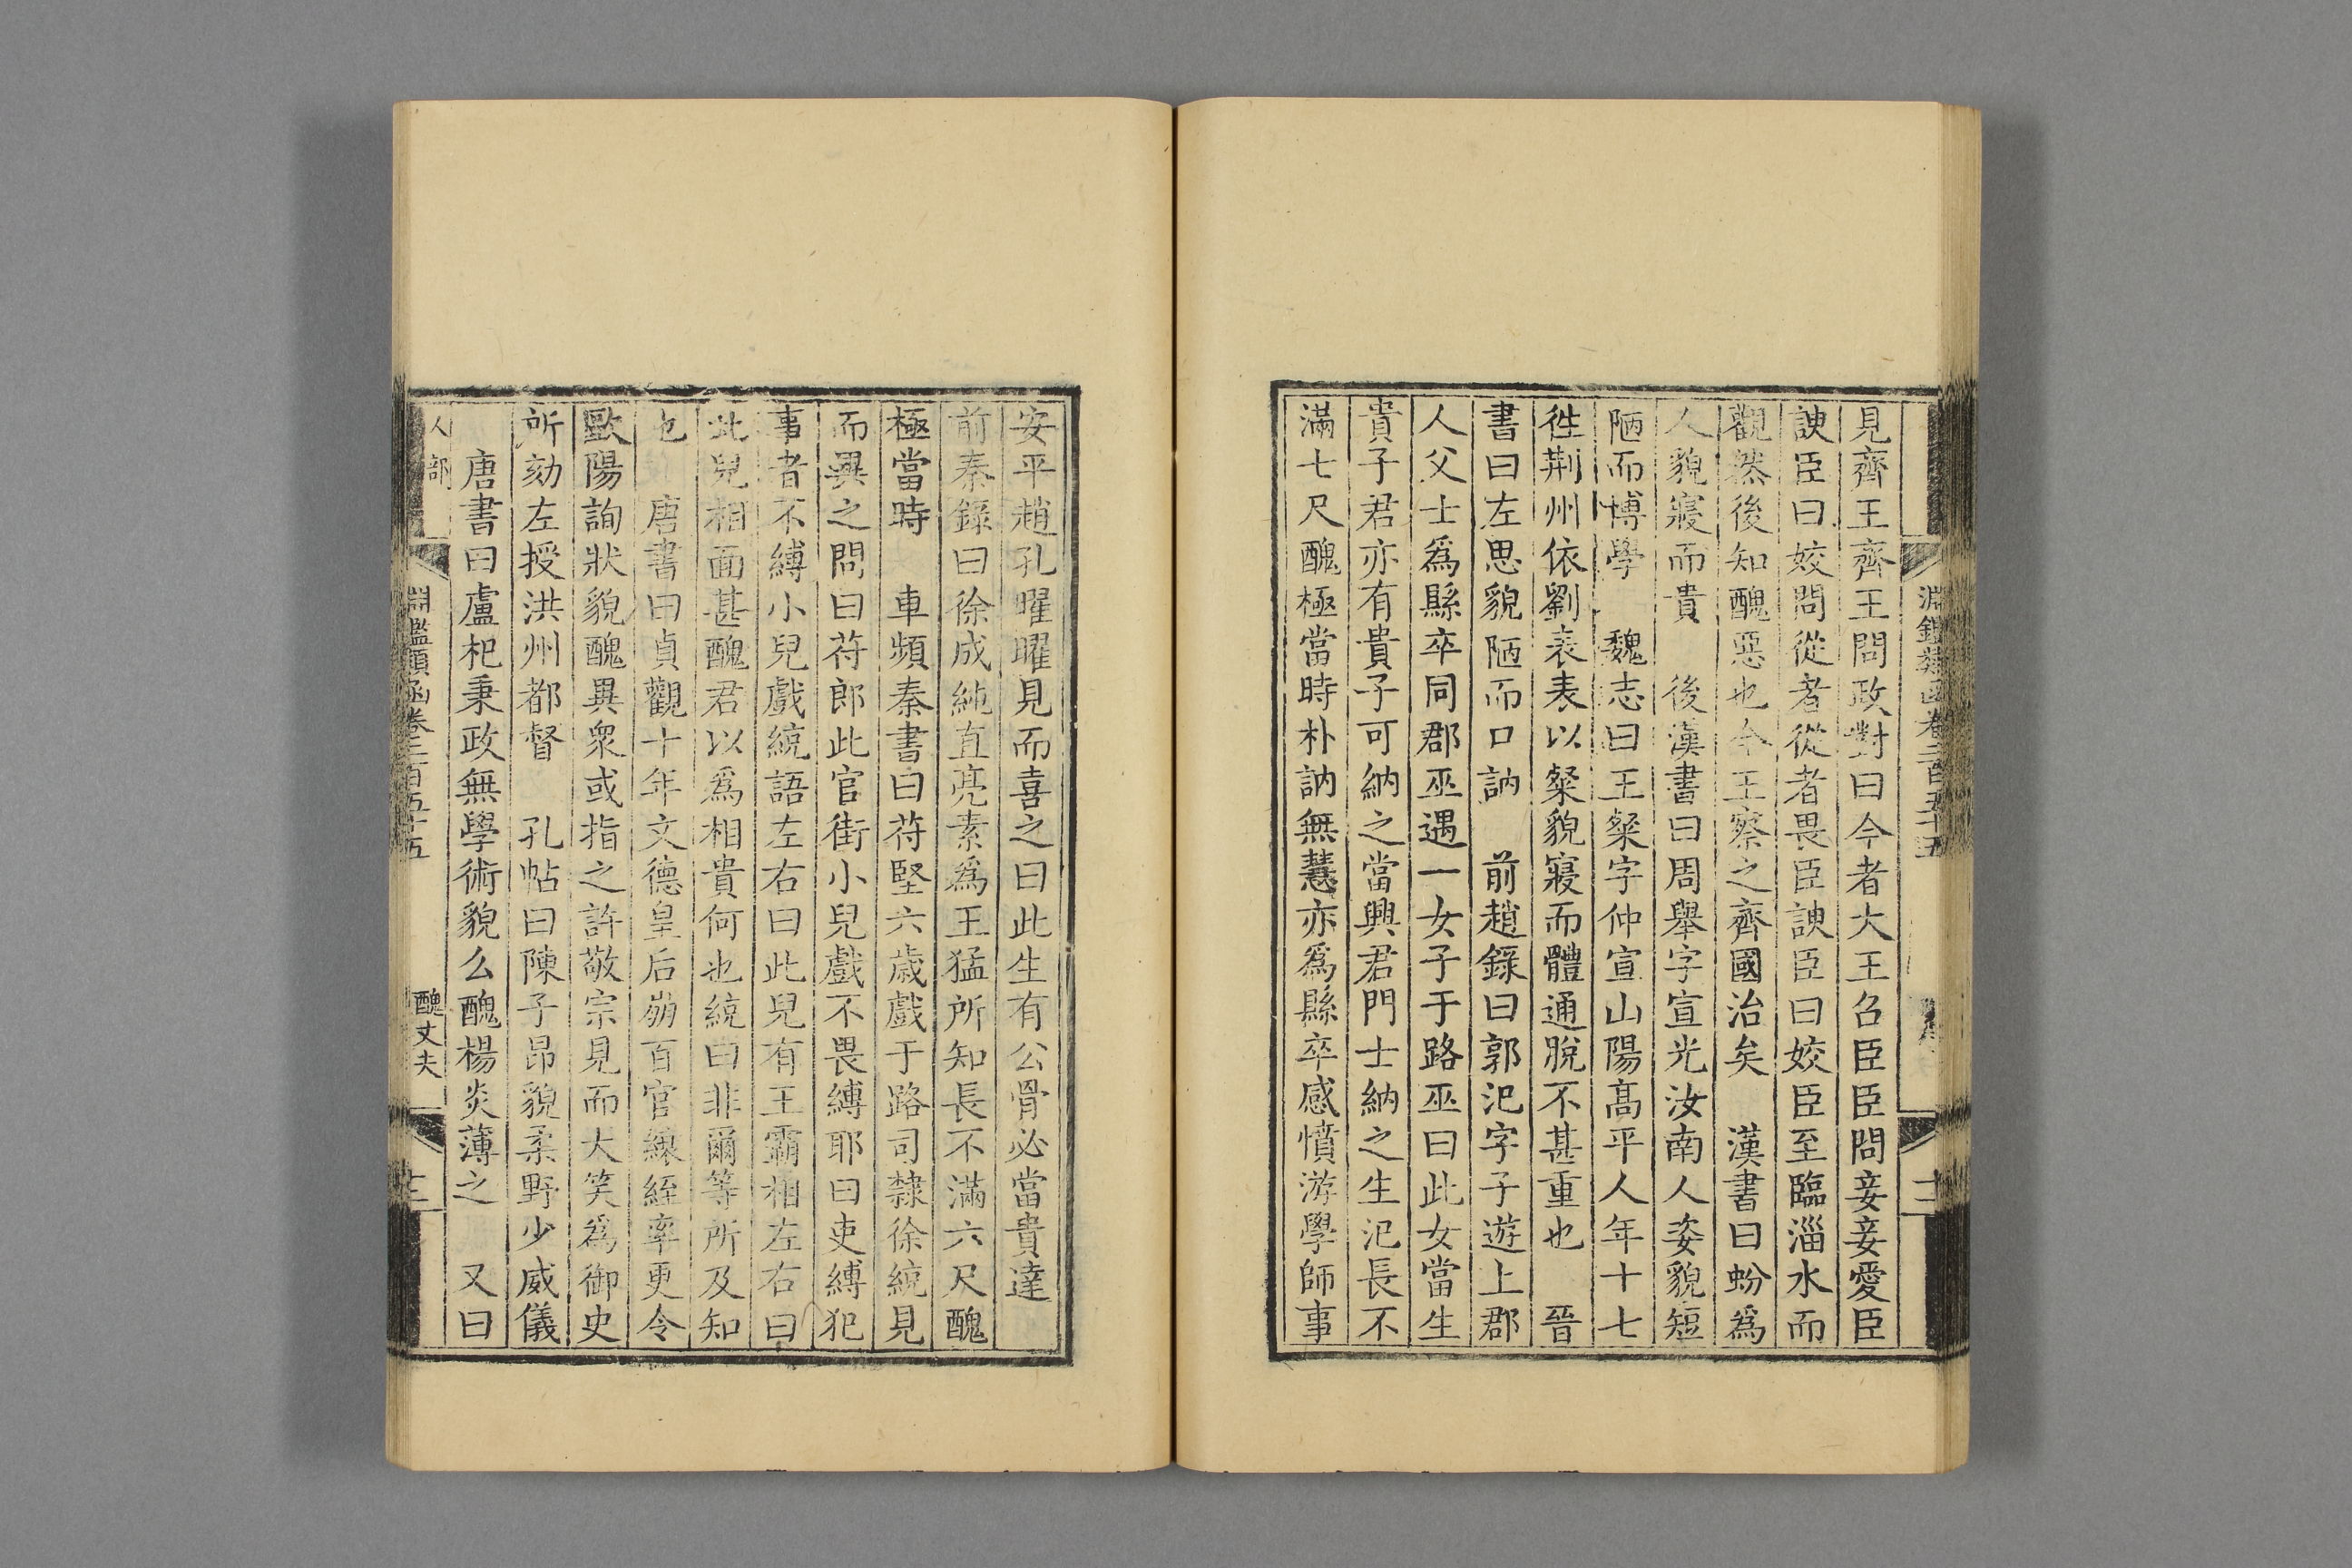 淵鑑類函卷二百五十五
見齊王齊王問政對曰今者大王召臣臣問妾妾愛臣
諛臣曰姣問從者從者畏臣諛臣曰姣臣至臨淄水而
觀然後知醜惡也今王察之齊國治矣　漢書曰蚡爲
人貌寢而貴　後漢書曰周舉字宣光汝南人姿貌短
陋而博學　魏志曰王粲字仲宣山陽高平人年十七
徃荆州依劉表表以粲貌寢而體通脫不甚重也　晉
書曰左思貌陋而口訥　前趙錄曰郭汜字子遊上郡
人父士爲縣卒同郡巫遇一女子于路巫曰此女當生
貴子君亦有貴子可納之當興君門士納之生汜長不
滿七尺醜極當時朴訥無慧亦爲縣卒感憤游學師事
安平趙孔曜曜見而喜之曰此生有公骨必當貴達
前秦錄曰徐成純直亮素爲王猛所知長不滿六尺醜
極當時　車頻秦書曰苻堅六歲戲于路司隸徐統見
而異之問曰苻郎此官街小兒戲不畏縛耶曰吏縛犯
事者不縛小兒戲統語左右曰此兒有王霸相左右曰
此兒相面甚醜君以爲相貴何也統曰非爾等所及知
也　唐書曰貞觀十年文德皇后崩百官縗絰率更令
歐陽詢狀貌醜異衆或指之許敬宗見而大笑爲御史
所劾左授洪州都督　孔帖曰陳子昂貌柔野少威儀
唐書曰盧杞秉政無學術貌么醜楊炎薄之　又曰
人部
淵鑑類函卷二百五十五
醜丈夫